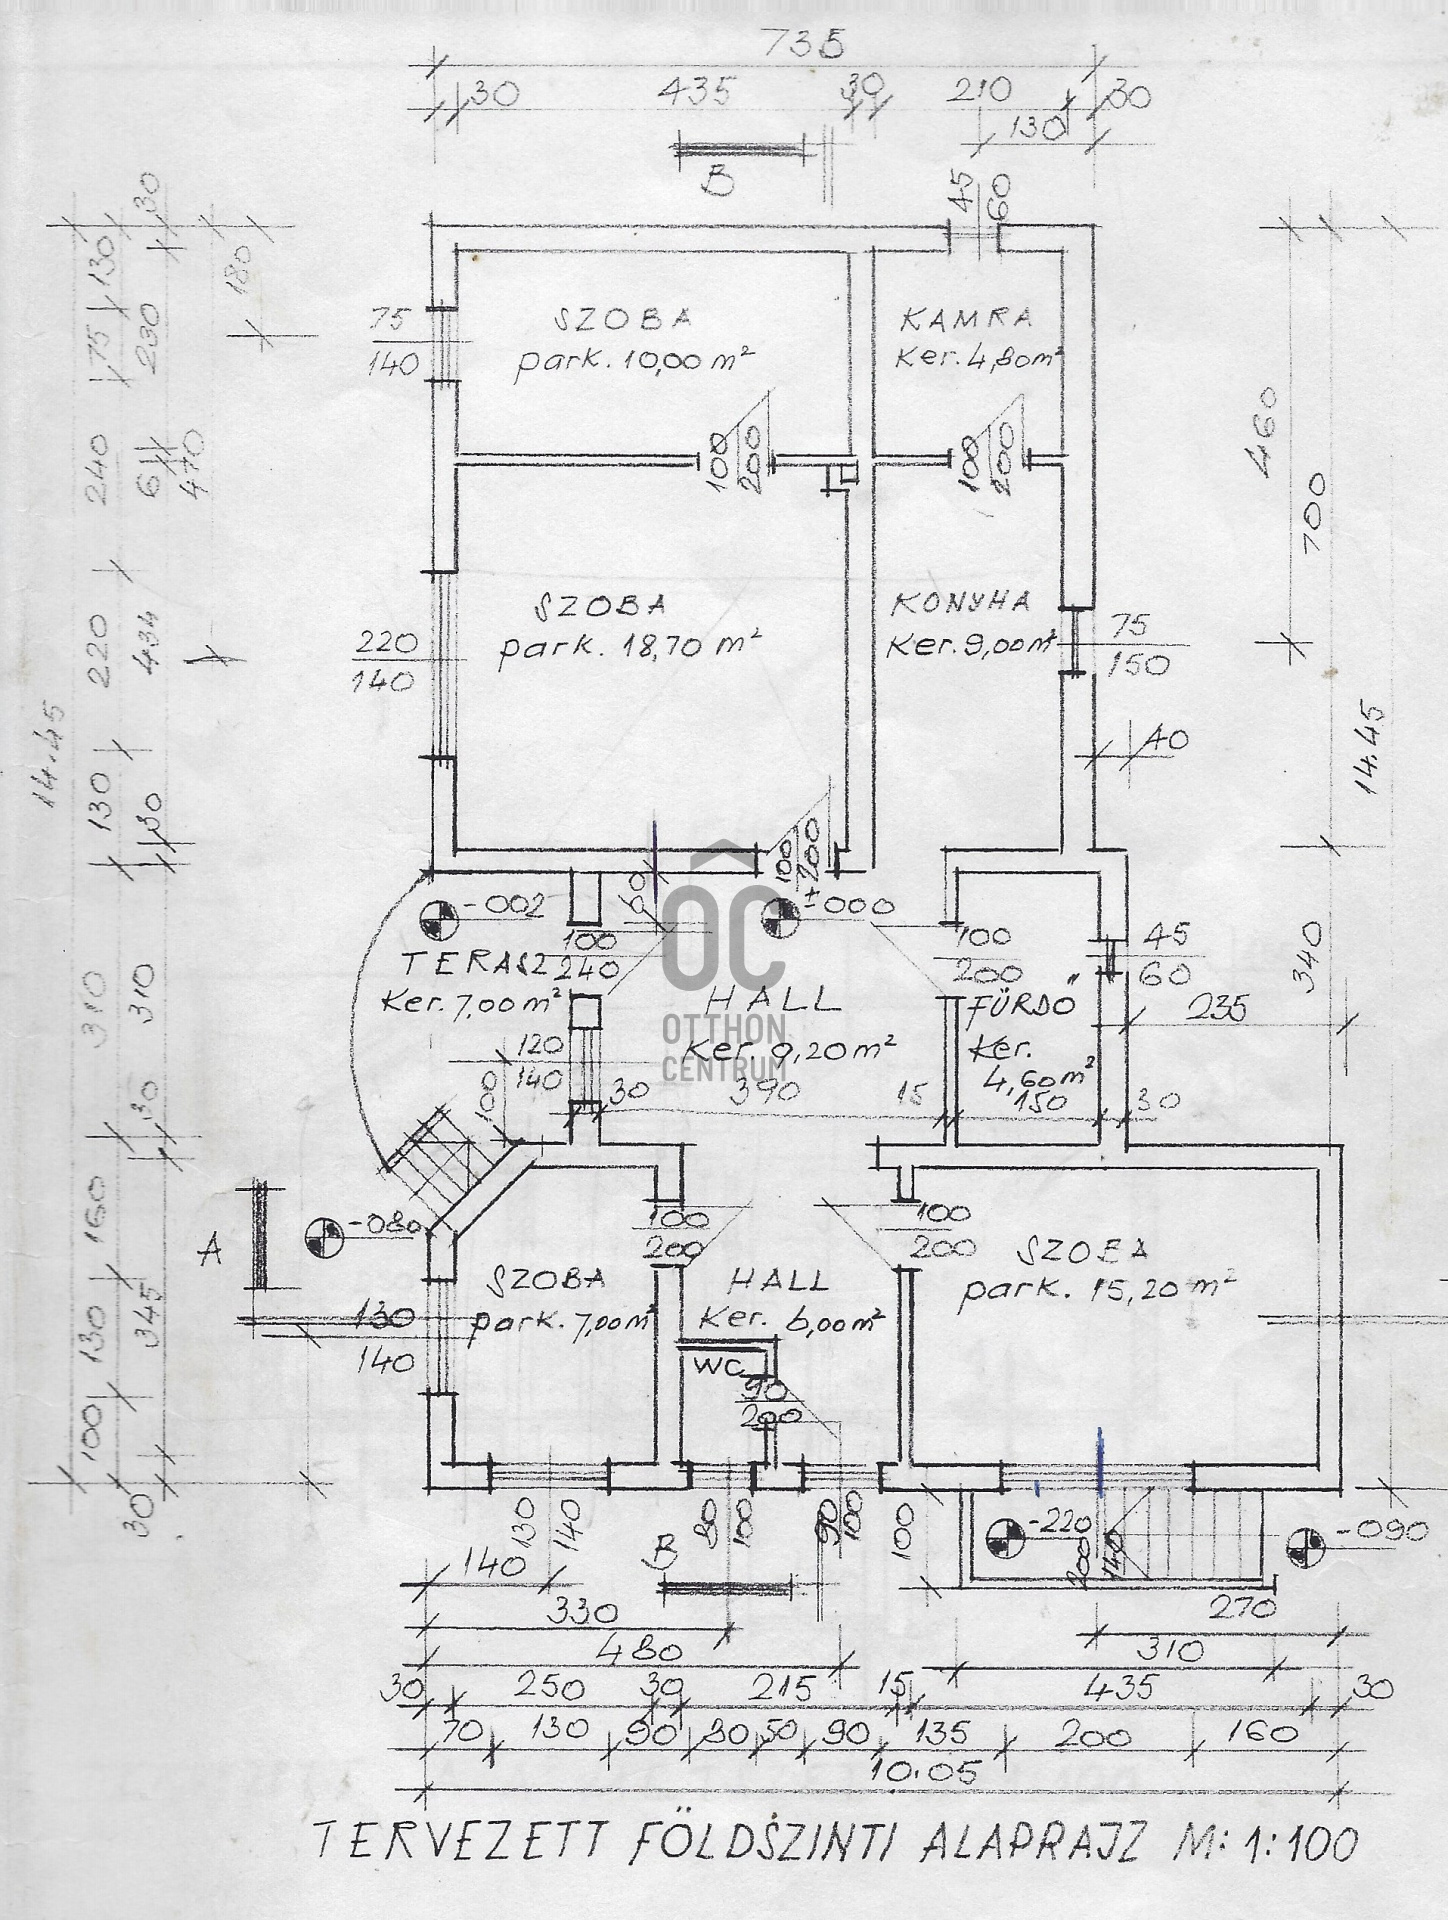 735
30 435 30 210 30
130
B
45
60
30
130
230
180
75
75
140
SZOBA
park. 10,00 m²
KAMRA
Ker. 4,80m²
100
200
100
200
240
61
470
460
700
SZOBA
park. 18,70 m²
KONYHA
Ker. 9,00m²
75
150
220
140
220
434
14.45
40
14.45
130
30
100
200
±000
-002
60
100
240
TERASZ
Ker. 7,00m²
HALL
Ker. 9,20m²
OC
OTTHON
CENTRUM
100
200
FÜRDŐ
Ker.
4,60m²
45
60
340
235
310
310
120
140
100
30 390 15 150 30
30
160
-080
A
100
200
100
200
SZOBA
park. 7,00m²
HALL
Ker. 6,00m²
SZOBA
park. 15,20 m²
345
130
130
140
WC
90
200
100
30
130
140
80
100
90
100
100
-220
200
140
-090
B
140
330
270
480
310
30 250 30 215 15 435 30
70 130 90 80 50 90 135 200 160
10.05
TERVEZETT FÖLDSZINTI ALAPRAJZ M: 1:100